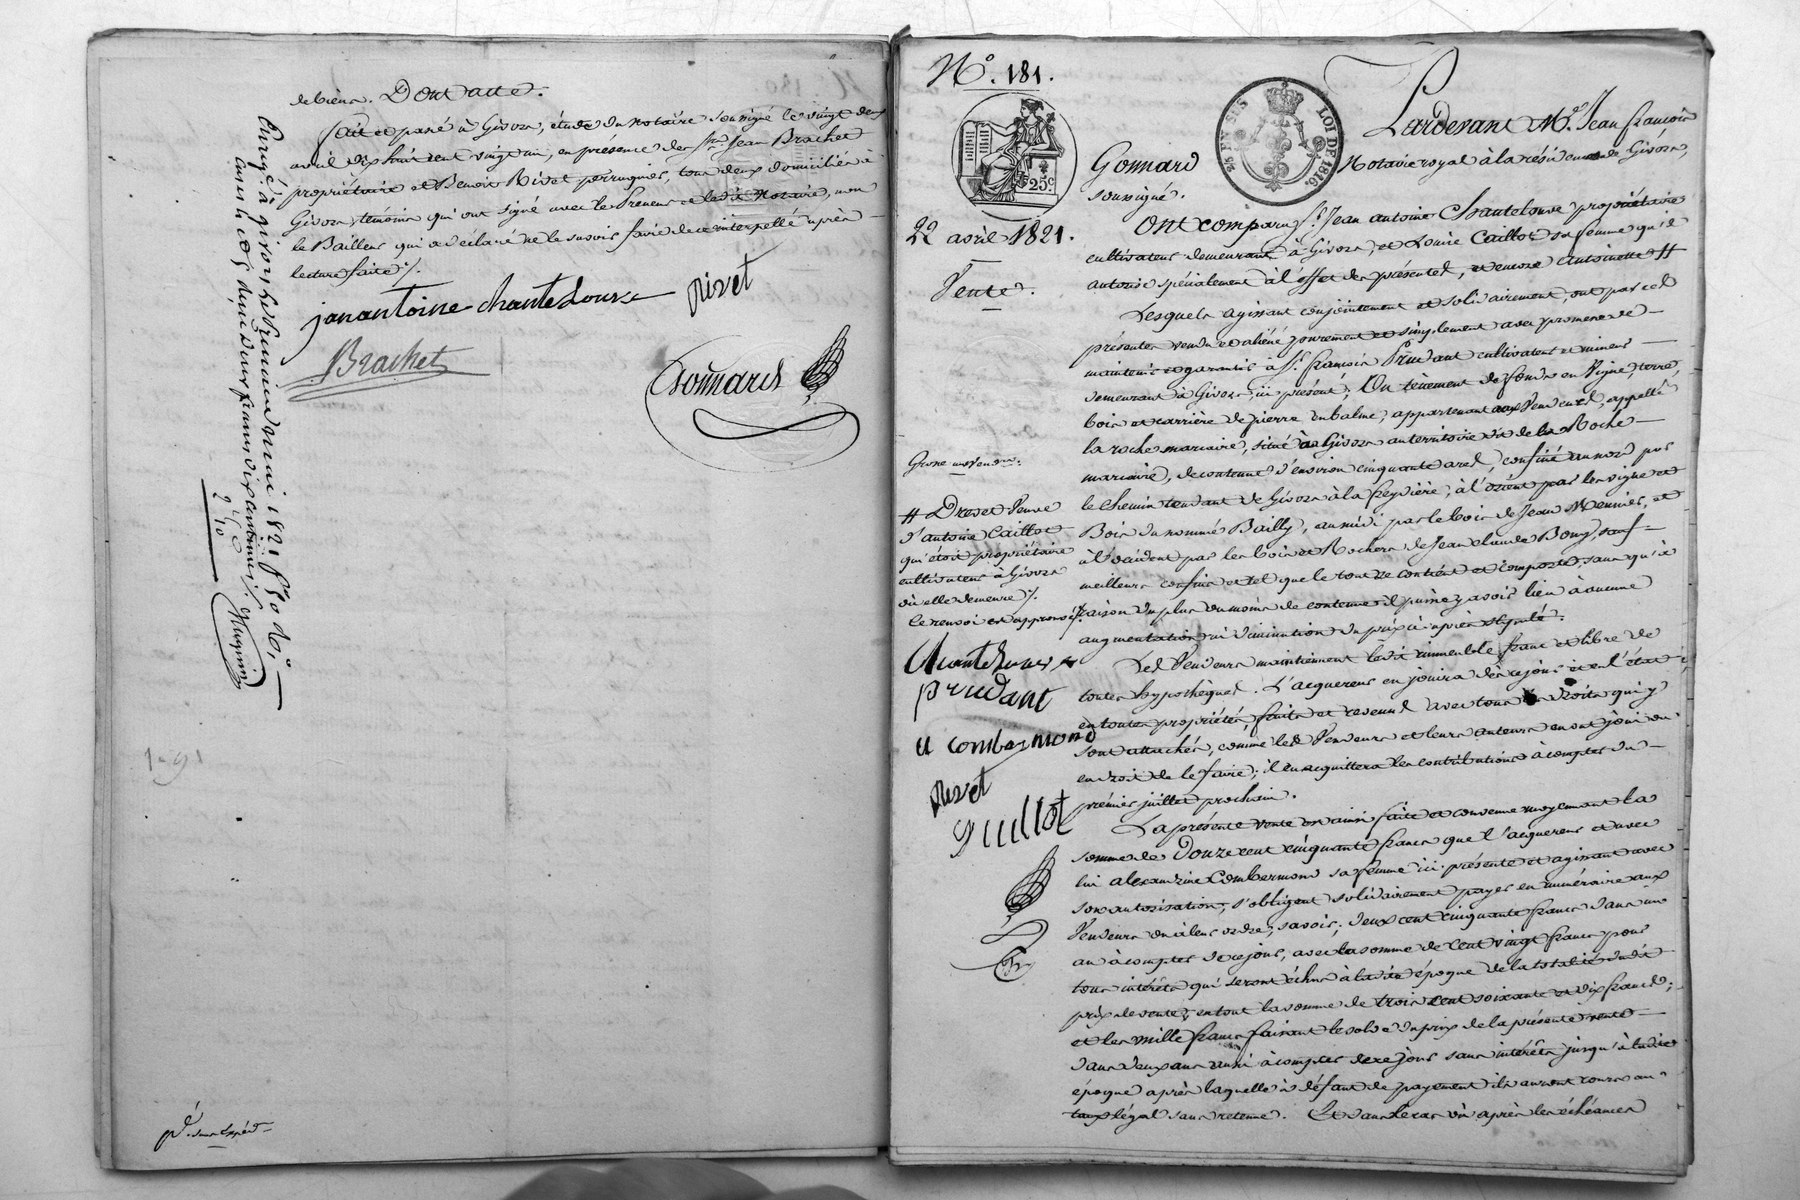 de biens. Dont acte.
fait et passé à Givors, étude du notaire soussigné le vingt deux
avril dix huit cent vingt un, en présence des Srs Jean Brachet
propriétaire et Benoit Rivet perruquier, tous deux domiciliés à
Givors, témoins qui ont signé avec le Preneur et ledit Notaire, non
le Bailleur qui a déclaré ne le savoir faire de ce interpellé après
lecture faite ./.
janantoine chantelouse rivet
Brachet
Gonnard
Enregé à givors le premier mai 1821 fo 50 Ro
deux francs dix centimes
2 10
pd. sur Expédn
No. 181.
25c
28 EN SUS
LOI DE 1816.
22 avril 1821.
Vente.
Pardevant Me. Jean françois
Gonnard Notaire royal à la résidence de Givors,
soussigné.
Ont comparu Sr. Jean antoine Chantelouse propriétaire
cultivateur demeurant à Givors, et Louise Caillot sa femme qu'il
autorise spécialement à l'effet des présentes, et encore antoinette #
Lesquels agissant conjointement et solidairement, ont par ces
présentes vendu et aliéné purement et simplement avec promesse de
maintenir et garantir à Sr. françois Prudant cultivateur et mineur
demeurant à Givors, ici présent, Un tènement de fonds en Vigne, terre,
bois et carrière de pierre en balme, appartenant aux Vendeurs, appellé
la roche marcaire, situé à Givors au territoire dit de la Roche
marcaire, de contenue d'environ cinquante ares, confiné au nord par
le chemin tendant de Givors à la freydière, à l'orient par les vigne et
Bois du nommé Bailly, au midi par le bois de Jean Meunier, et
à l'occident par les bois et Rochers de Jean claude Bony, sauf
meilleurs confins et tel que le tout se contient et comporte, sans qu'à
raison du plus ou moins de contenue il puisse y avoir lieu à aucune
augmentation ni diminution du prix ci-après stipulé.
Les Vendeurs maintiennent ledit immeuble franc et libre de
toutes hypothèques. L'acquéreur en jouira dès ce jour ici en l'état,
en toutes propriétés, fruits et revenus avec tous les droits qui y
sont attachés, comme les Vendeurs et leurs auteurs en ont joui ou
eu droit de le faire; il en acquittera les contributions à compter du
premier juillet prochain.
La présente vente est ainsi faite et convenue moyennant la
somme de Douze cent cinquante francs que l'acquéreur et avec
lui alexandrine Combermond sa femme ici présente et agissant avec
son autorisation, s'obligent solidairement payer en numéraire aux
Vendeurs ou à leur ordre, savoir; deux cent cinquante francs dans un
an à compter de ce jour, avec la somme de cent vingt francs pour
tous intérêts qui seront échus à ladite époque de la totalité dudit
prix de vente, en tout la somme de trois cent soixante et dix francs;
et les mille francs faisant le solde du prix de la présente vente
dans deux ans aussi à compter de ce jour sans intérêts jusqu'à ladite
époque après laquelle à défaut de payement ils auront cours au
taux légal sans retenue. Et dans le cas où après les échéances
# Drevet Veuve
d'antoine Caillot
qui étoit propriétaire
cultivateur à Givors
où elle demeure ./.
le renvoi est approuvé ./.
Chantelouse
prudant
a combermond
rivet
Guillot